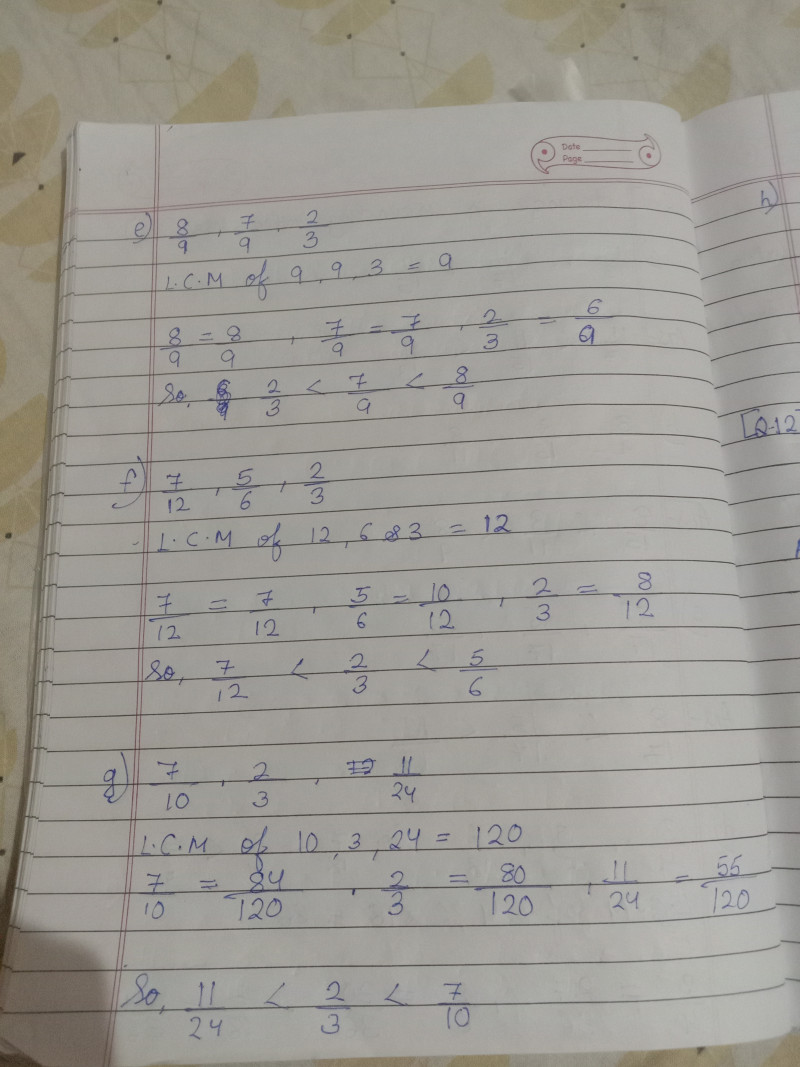 Date
Page
e) 8/9, 7/9, 2/3
L.C.M of 9, 9, 3 = 9
8/9 = 8/9, 7/9 = 7/9, 2/3 = 6/9
So, 2/3 < 7/9 < 8/9
f) 7/12, 5/6, 2/3
L.C.M of 12, 6 & 3 = 12
7/12 = 7/12, 5/6 = 10/12, 2/3 = 8/12
So, 7/12 < 2/3 < 5/6
g) 7/10, 2/3, 11/24
L.C.M of 10, 3, 24 = 120
7/10 = 84/120, 2/3 = 80/120, 11/24 = 55/120
So, 11/24 < 2/3 < 7/10
h)
[Q.12]